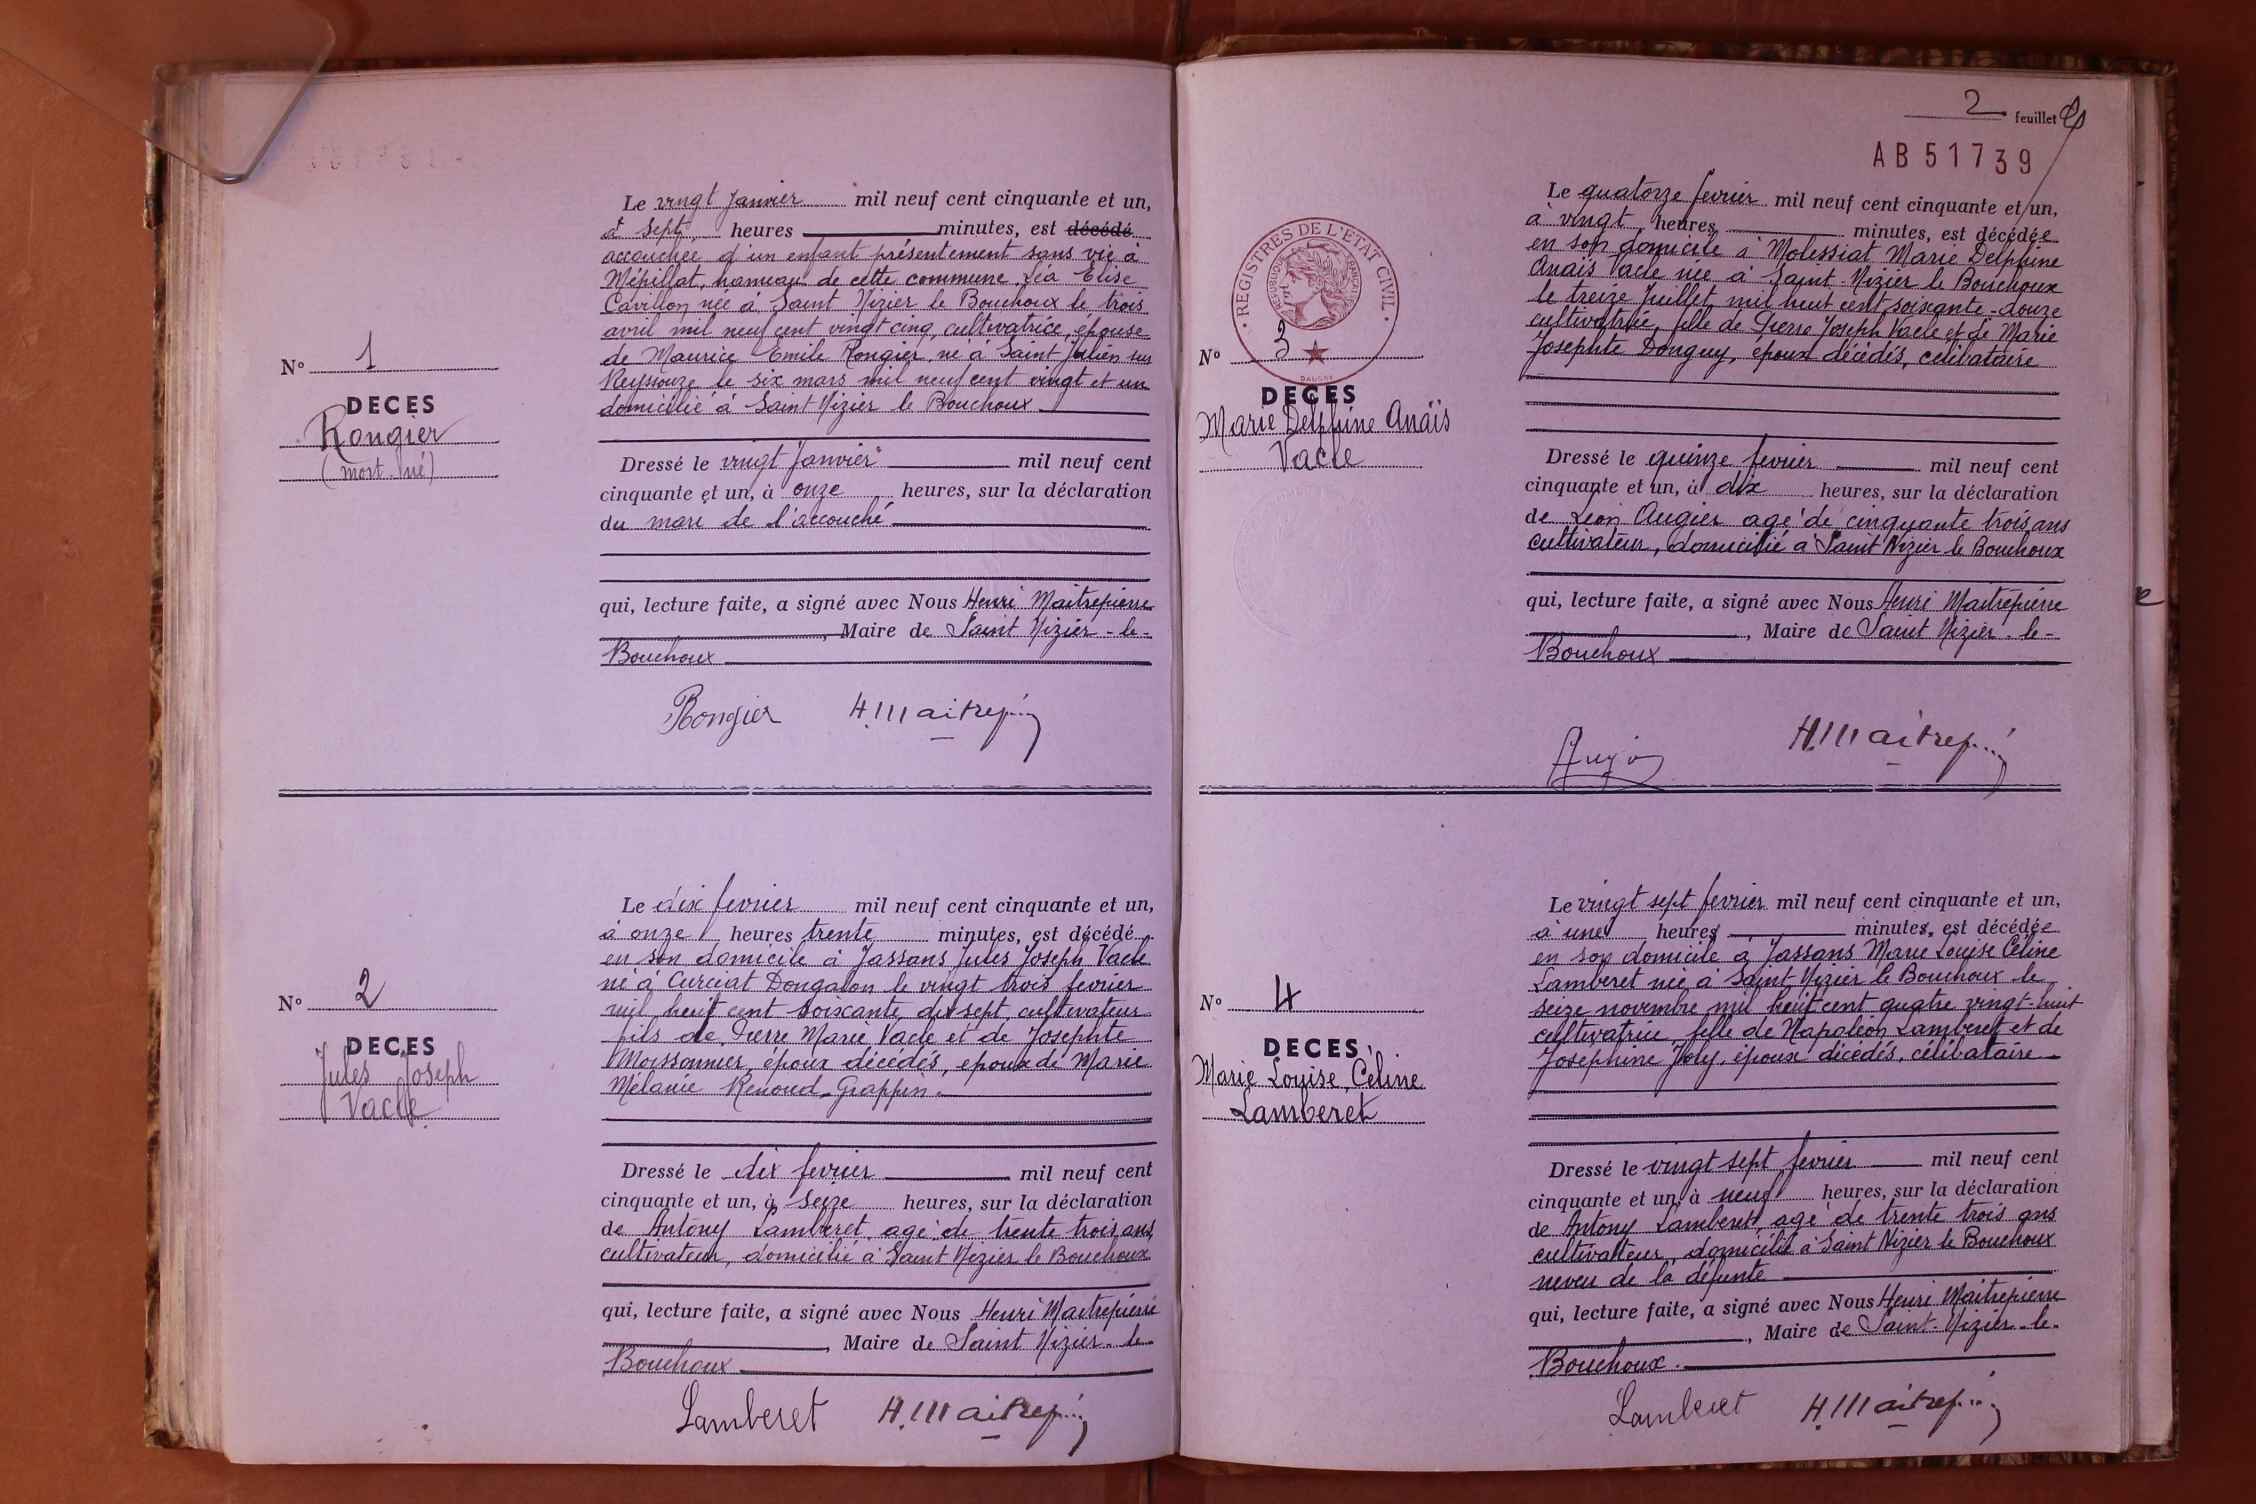 Le vingt Janvier mil neuf cent cinquante et un,
à sept heures minutes, est décédé
accouchée d'un enfant présentement sans vie à
Mépillat, hameau de cette commune, Léa Elise
Cavillon née à Saint Nizier le Bouchoux le trois
avril mil neuf cent vingt cinq, cultivatrice, épouse
de Maurice Emile Rongier, né à Saint Julien sur
Reyssouze le six mars mil neuf cent vingt et un
domicilié à Saint Nizier le Bouchoux
N° 1
DECES
Rongier
(mort-né)
Dressé le vingt Janvier mil neuf cent
cinquante et un, à onze heures, sur la déclaration
du mari de l'accouché
qui, lecture faite, a signé avec Nous Henri Maitrepierre
, Maire de Saint Nizier-le-
Bouchoux
Rongier H. Maitrepierre
Le dix fevrier mil neuf cent cinquante et un,
à onze heures trente minutes, est décédé
en son domicile à Jassans Jules Joseph Vacle
né à Curciat Dongalon le vingt trois fevrier
mil huit cent soixante dix sept, cultivateur
fils de Pierre Marie Vacle et de Josephte
Moissonnier, époux décédés, époux de Marie
Mélanie Renoud-Grappin
N° 2
DECES
Jules Joseph
Vacle
Dressé le dix fevrier mil neuf cent
cinquante et un, à seize heures, sur la déclaration
de Antony Lamberet, agé de trente trois ans,
cultivateur, domicilié à Saint Nizier le Bouchoux
qui, lecture faite, a signé avec Nous Henri Maitrepierre
, Maire de Saint Nizier-le-
Bouchoux
Lamberet H. Maitrepierre
2 feuillet
AB51739
Le quatorze fevrier mil neuf cent cinquante et un,
à vingt heures minutes, est décédée
en son domicile à Molessiat Marie Delphine
Anaïs Vacle née à Saint-Nizier le Bouchoux
le treize Juillet mil huit cent soixante-douze
cultivatrice, fille de Pierre Joseph Vacle et de Marie
Josephte Donguy, époux décédés, célibataire
REGISTRES DE L'ETAT CIVIL
REPUBLIQUE FRANCAISE
N° 3
DECES
Marie Delphine Anaïs
Vacle
Dressé le quinze fevrier mil neuf cent
cinquante et un, à dix heures, sur la déclaration
de Léon Augier agé de cinquante trois ans
cultivateur, domicilié à Saint Nizier le Bouchoux
qui, lecture faite, a signé avec Nous Henri Maitrepierre
, Maire de Saint Nizier-le-
Bouchoux
H. Maitrepierre
Le vingt sept fevrier mil neuf cent cinquante et un,
à une heures minutes, est décédée
en son domicile à Jassans Marie Louise Céline
Lamberet née à Saint Nizier le Bouchoux le
seize novembre mil huit cent quatre vingt-huit
cultivatrice, fille de Napoléon Lamberet et de
Josephine Joly, époux décédés, célibataire
N° 4
DECES
Marie Louise Céline
Lamberet
Dressé le vingt sept fevrier mil neuf cent
cinquante et un, à neuf heures, sur la déclaration
de Antony Lamberet, agé de trente trois ans
cultivateur, domicilié à Saint Nizier le Bouchoux
neveu de la défunte
qui, lecture faite, a signé avec Nous Henri Maitrepierre
, Maire de Saint-Nizier-le-
Bouchoux
Lamberet H. Maitrepierre